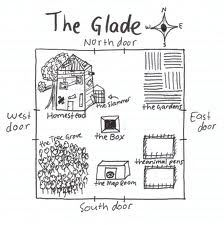 The Glade
N
W E
S
North door
the slammer
Homestead
the Gardens
West door
East door
the Box
the Tree Grove
the Map Room
the animal pens
South door